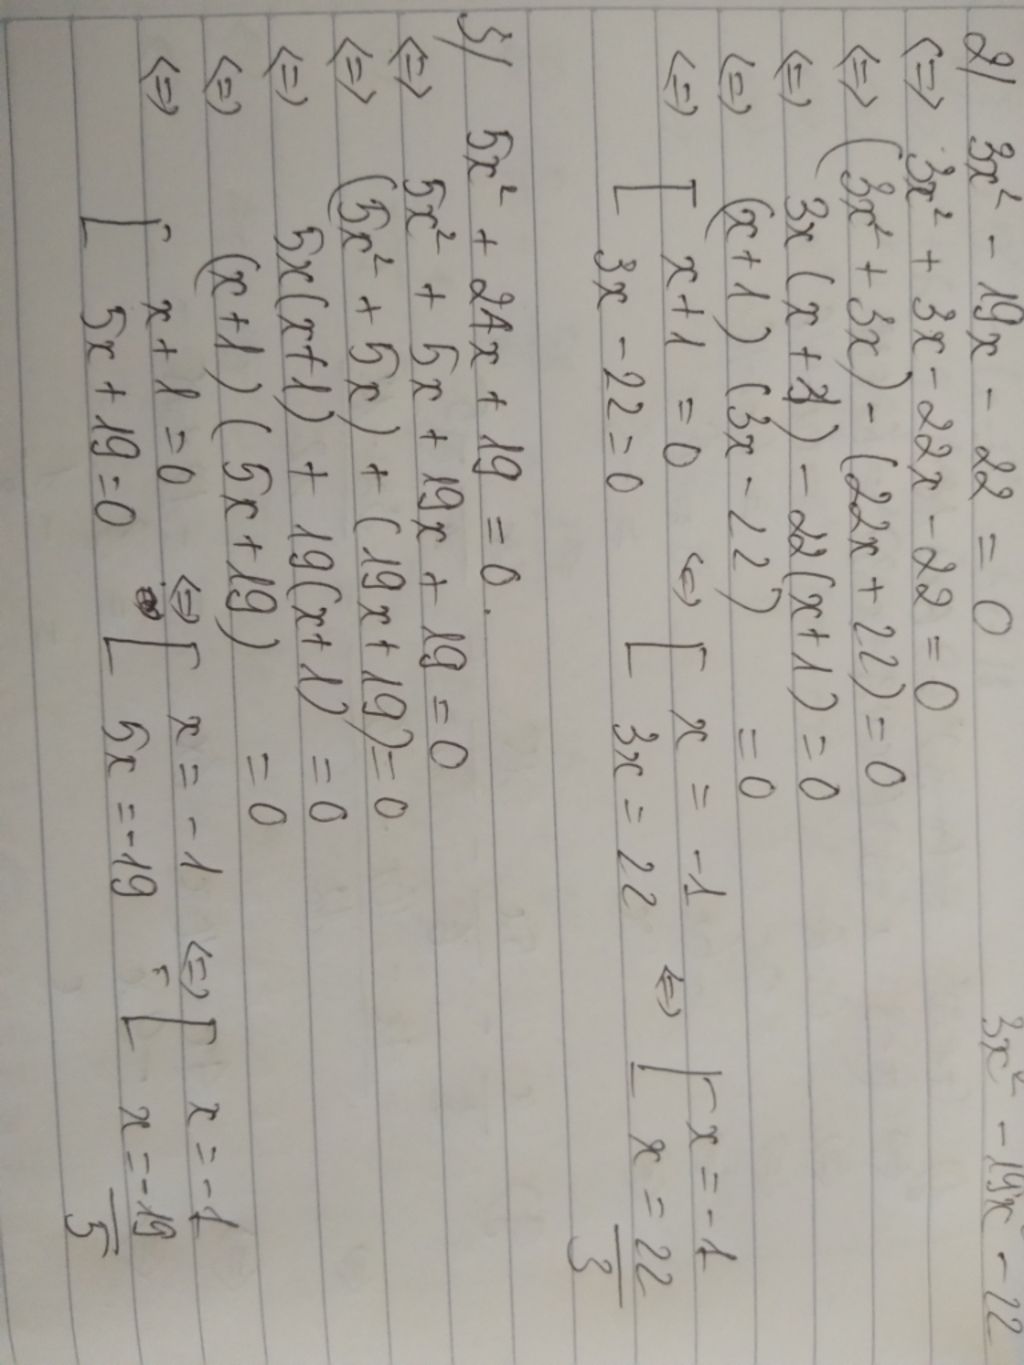 3x² - 19x - 22
2/ 3x² - 19x - 22 = 0
<=> 3x² + 3x - 22x - 22 = 0
<=> (3x² + 3x) - (22x + 22) = 0
<=> 3x(x + 1) - 22(x + 1) = 0
<=> (x + 1)(3x - 22) = 0
<=> [ x + 1 = 0 <=> [ x = -1 <=> [ x = -1
3x - 22 = 0 3x = 22 x = 22/3
3/ 5x² + 24x + 19 = 0.
<=> 5x² + 5x + 19x + 19 = 0
<=> (5x² + 5x) + (19x + 19) = 0
<=> 5x(x + 1) + 19(x + 1) = 0
<=> (x + 1)(5x + 19) = 0
<=> [ x + 1 = 0 <=> [ x = -1 <=> [ x = -1
5x + 19 = 0 5x = -19 x = -19/5